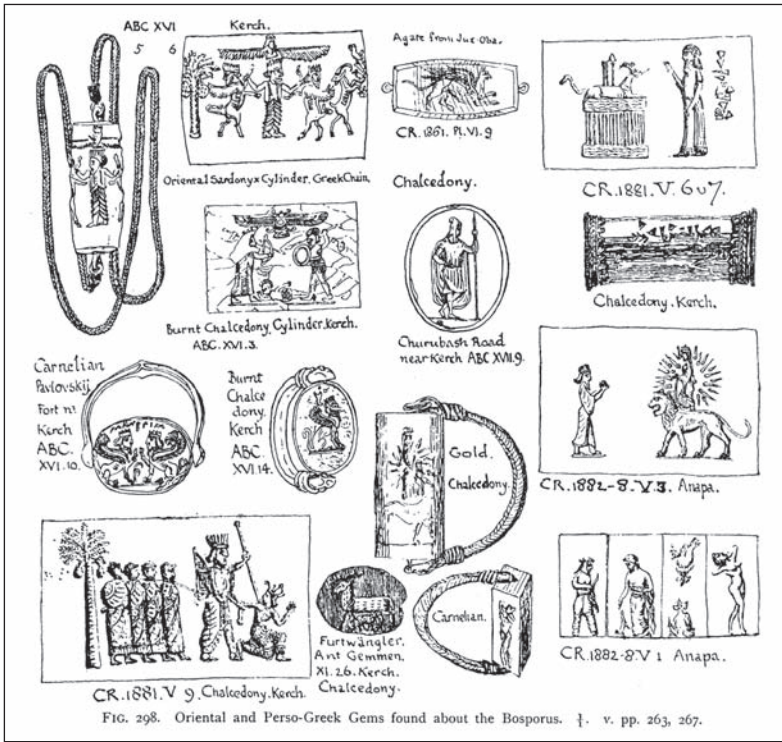 ABC XVI
5 6
Kerch.
Oriental Sardonyx Cylinder. Greek Chain.
Agate from Juz Oba.
CR. 1861. Pl. VI. 9
CR. 1881. V. 6 u 7.
Burnt Chalcedony, Cylinder. Kerch.
ABC. XVI. 3.
Chalcedony.
Churubash Road
near Kerch ABC XVII. 9.
Chalcedony. Kerch.
Carnelian
Pavlovskij
Fort nr.
Kerch
ABC.
XVI. 10.
Burnt
Chalce
dony.
Kerch
ABC.
XVI 14.
Gold.
Chalcedony.
CR. 1882-8. V. 3. Anapa.
CR. 1881. V 9. Chalcedony. Kerch.
Furtwängler.
Ant Gemmen.
XI. 26. Kerch.
Chalcedony.
Carnelian.
CR. 1882-8. V 1 Anapa.
FIG. 298. Oriental and Perso-Greek Gems found about the Bosporus. v. pp. 263, 267.